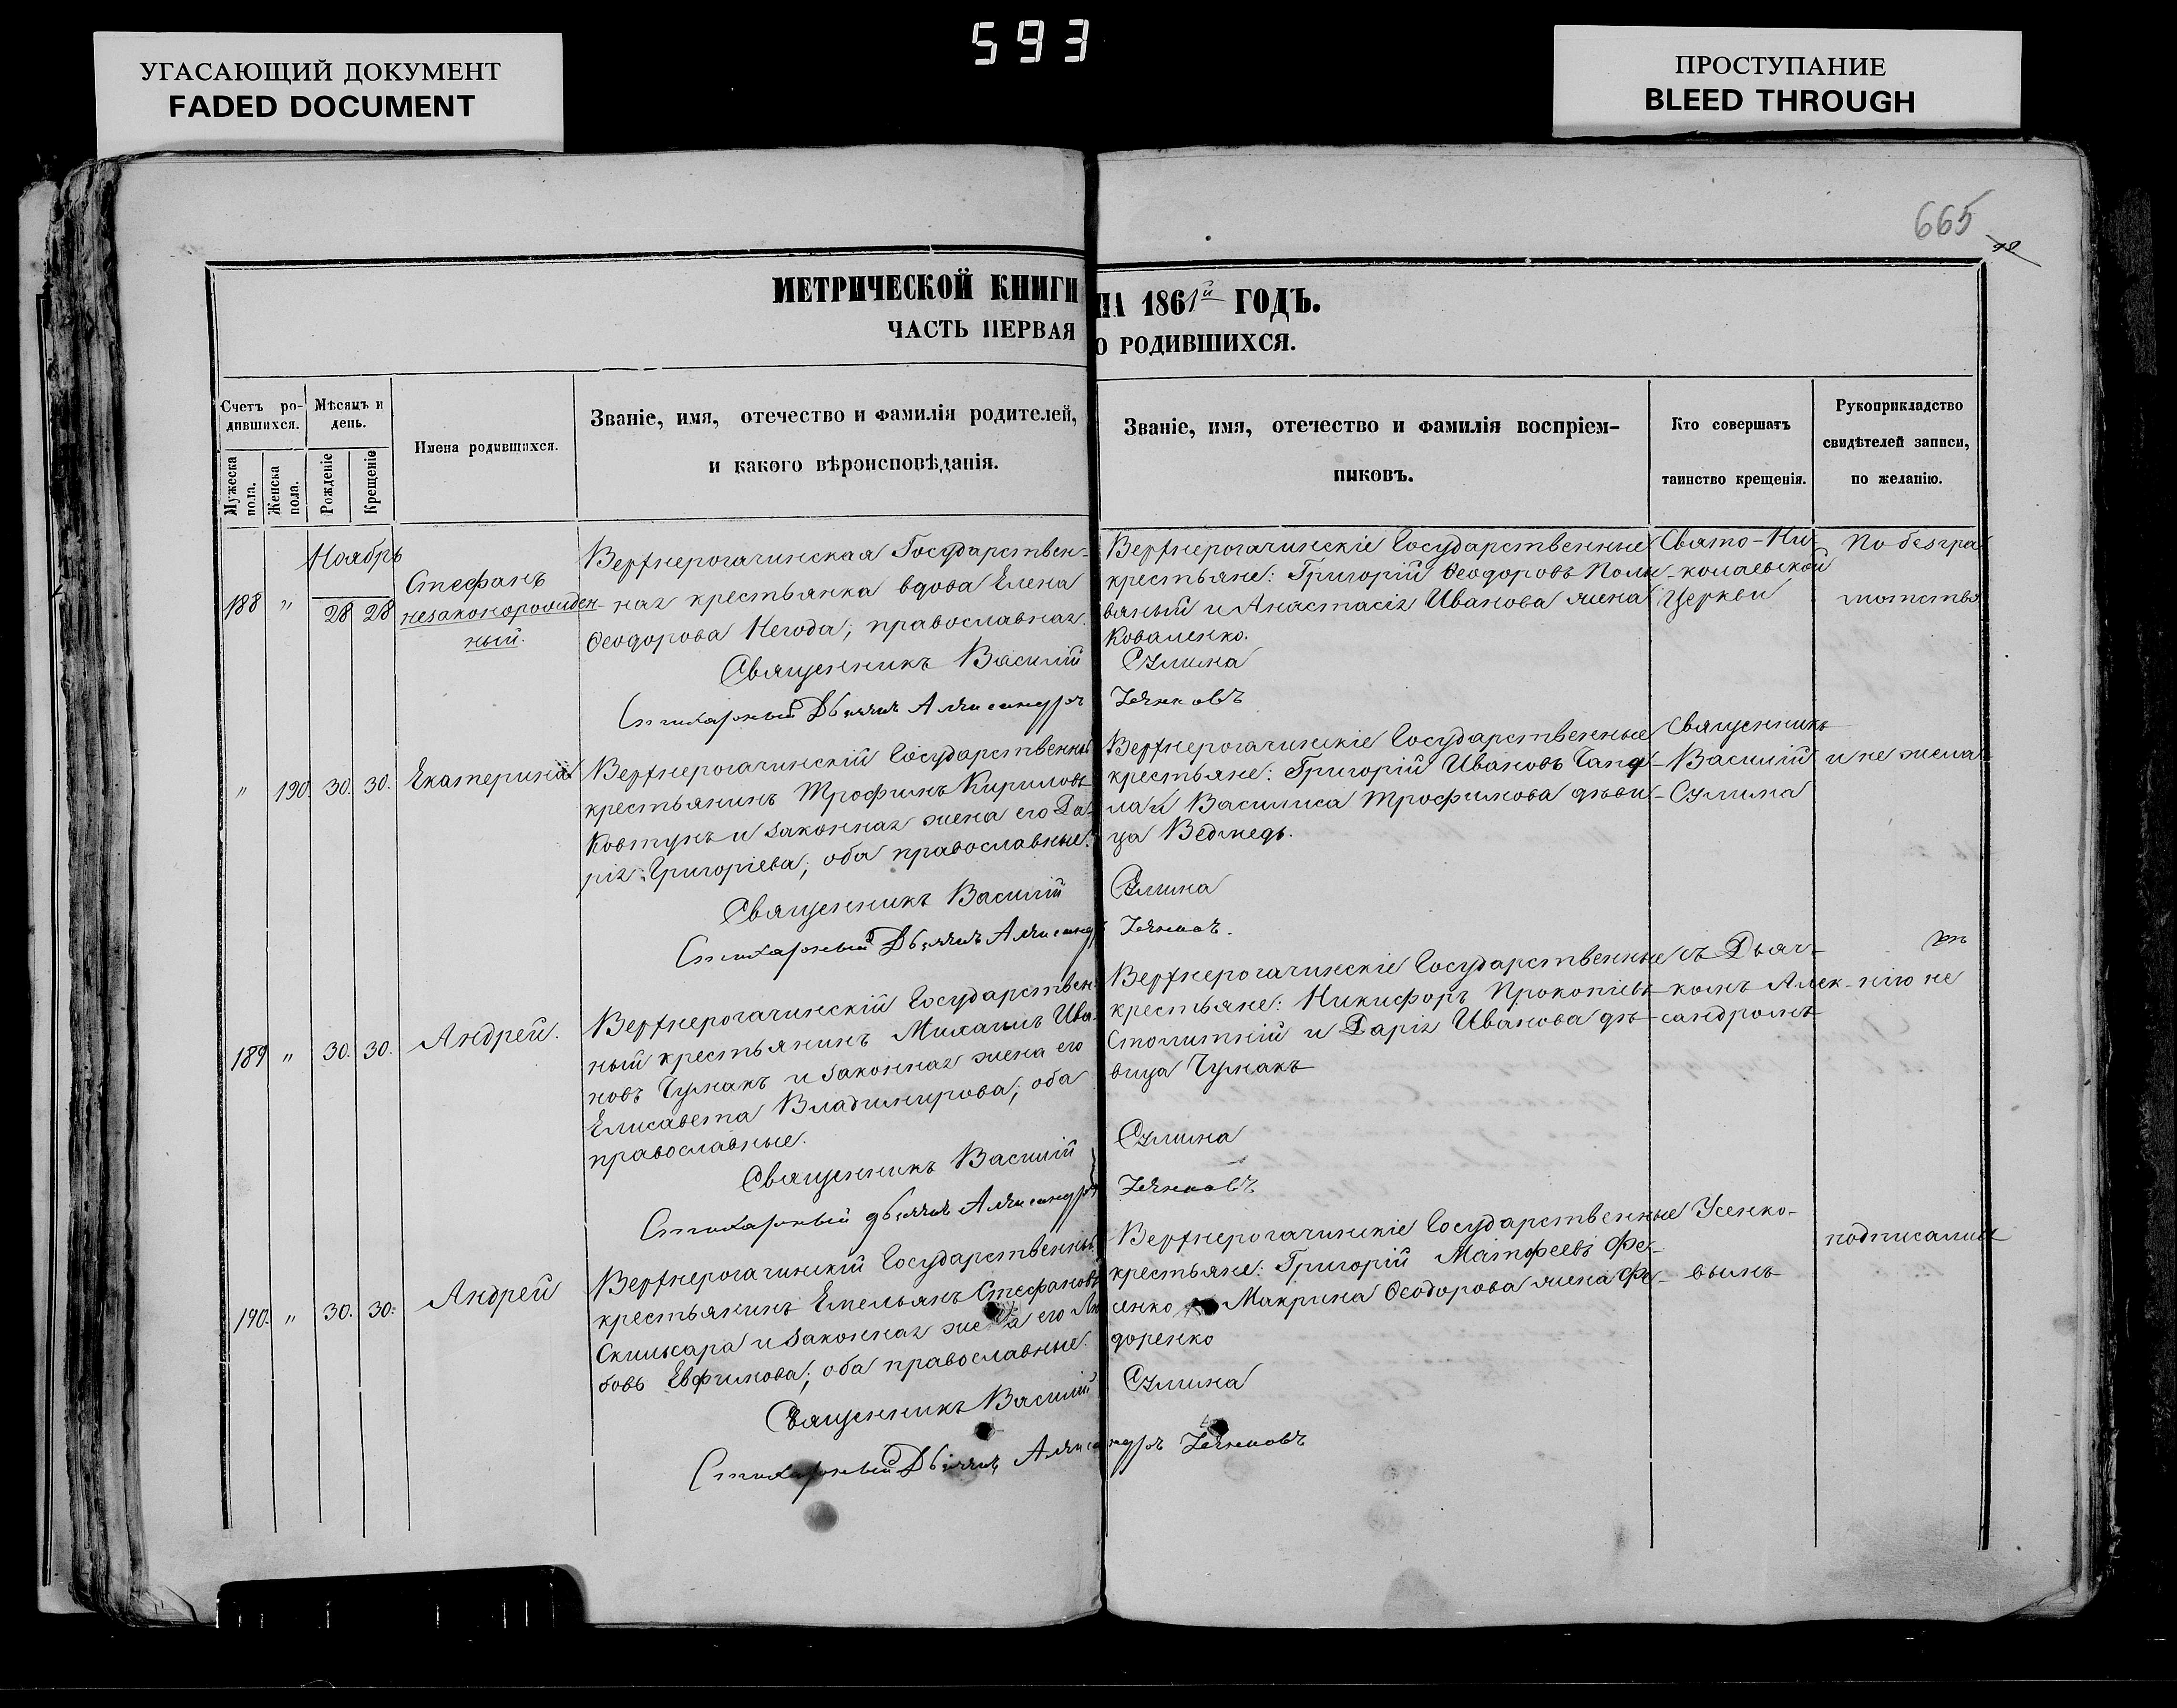 593
УГАСАЮЩИЙ ДОКУМЕНТ
FADED DOCUMENT
ПРОСТУПАНИЕ
BLEED THROUGH
665
МЕТРИЧЕСКОЙ КНИГИ
НА 1861й ГОДЪ.
ЧАСТЬ ПЕРВАЯ
О РОДИВШИХСЯ.
Счетъ ро-
дившихся.
Мужеска пола.
Женска пола.
Мѣсяцъ и
день.
Рожденіе
Крещеніе
Имена родившихся.
Званіе, имя, отечество и фамилія родителей,
и какого вѣроисповѣданія.
Званіе, имя, отечество и фамилія воспріем-
никовъ.
Кто совершатъ
таинство крещенія.
Рукоприкладство
свидѣтелей записи,
по желанію.
Ноябрь
188 " 28 28
Стефанъ
незаконорожден-
ный.
Верхнерогачинская Государствен-
ная крестьянка вдова Елена
Ѳеодорова Негода; православная.
Священникъ Василій
Стихарный Дьячекъ Александръ
Верхнерогачинскіе Государственные
крестьяне: Григорій Ѳеодоровъ Поли
вяный и Анастасія Иванова жена
Коваленко.
Сулима
Усенковъ
Свято-Ни-
колаевской
Церкви
По безгра
мотству
" 190. 30. 30. Екатерина
Верхнерогачинскій Государственный
крестьянинъ Трофимъ Кириловъ
Ковтунъ и законная жена его Да-
рія Григоріева; оба православные.
Священникъ Василій
Стихарный Дьячекъ Александръ
Верхнерогачинскіе Государственные
крестьяне: Григорій Ивановъ
Василиса Трофимова дѣви-
ца Ведмедь.
Сулима
Усенковъ.
Священникъ
Василій
Сулима
и не жела
189 " 30. 30. Андрей.
Верхнерогачинскій Государствен-
ный крестьянинъ Михаилъ Ива-
новъ Чумакъ и законная жена его
Елисавета Владимирова; оба
православные.
Священникъ Василій
Стихарный дьячекъ Александръ
Верхнерогачинскіе Государственные
крестьяне: Никифоръ Прокопіевъ
Столитній и Дарія Иванова дѣ-
вица Чумакъ
Сулима
Усенковъ
съ Дьяч-
комъ Алек-
сандромъ
нію не
190. " 30. 30. Андрей
Верхнерогачинскій Государственный
крестьянинъ Емельянъ Стефановъ
Скляжара и законная жена его Лю
бовь Евфимова; оба православные.
Священникъ Василій
Стихарный Дьячекъ Александръ Усенковъ
Верхнерогачинскіе Государственные
крестьяне: Григорій Матфеевъ Фе-
сенко и Макрина Ѳеодорова жена Фе-
доренко
Сулима
Усенко-
вымъ
подписались